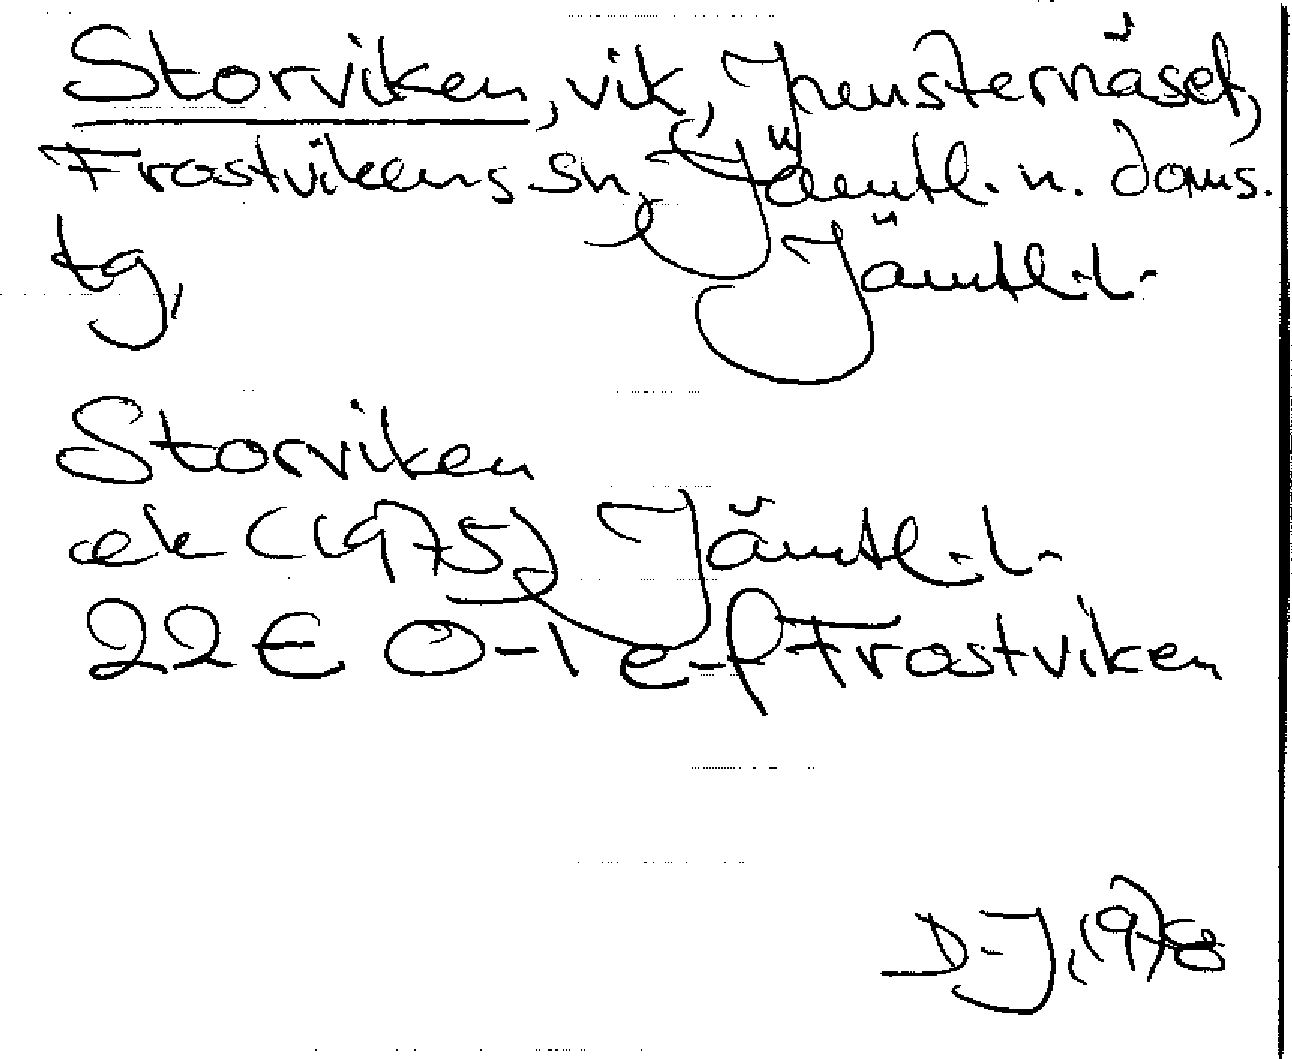 Storviken, vik, Jpmsternäset,
Frostvikens sn, Jämtl. n. doms.
tg, Jämtl.l.
Storviken
ek (1975) Jämtl.l.
22E 0-1 e-f Frostviken
D-J, 1978